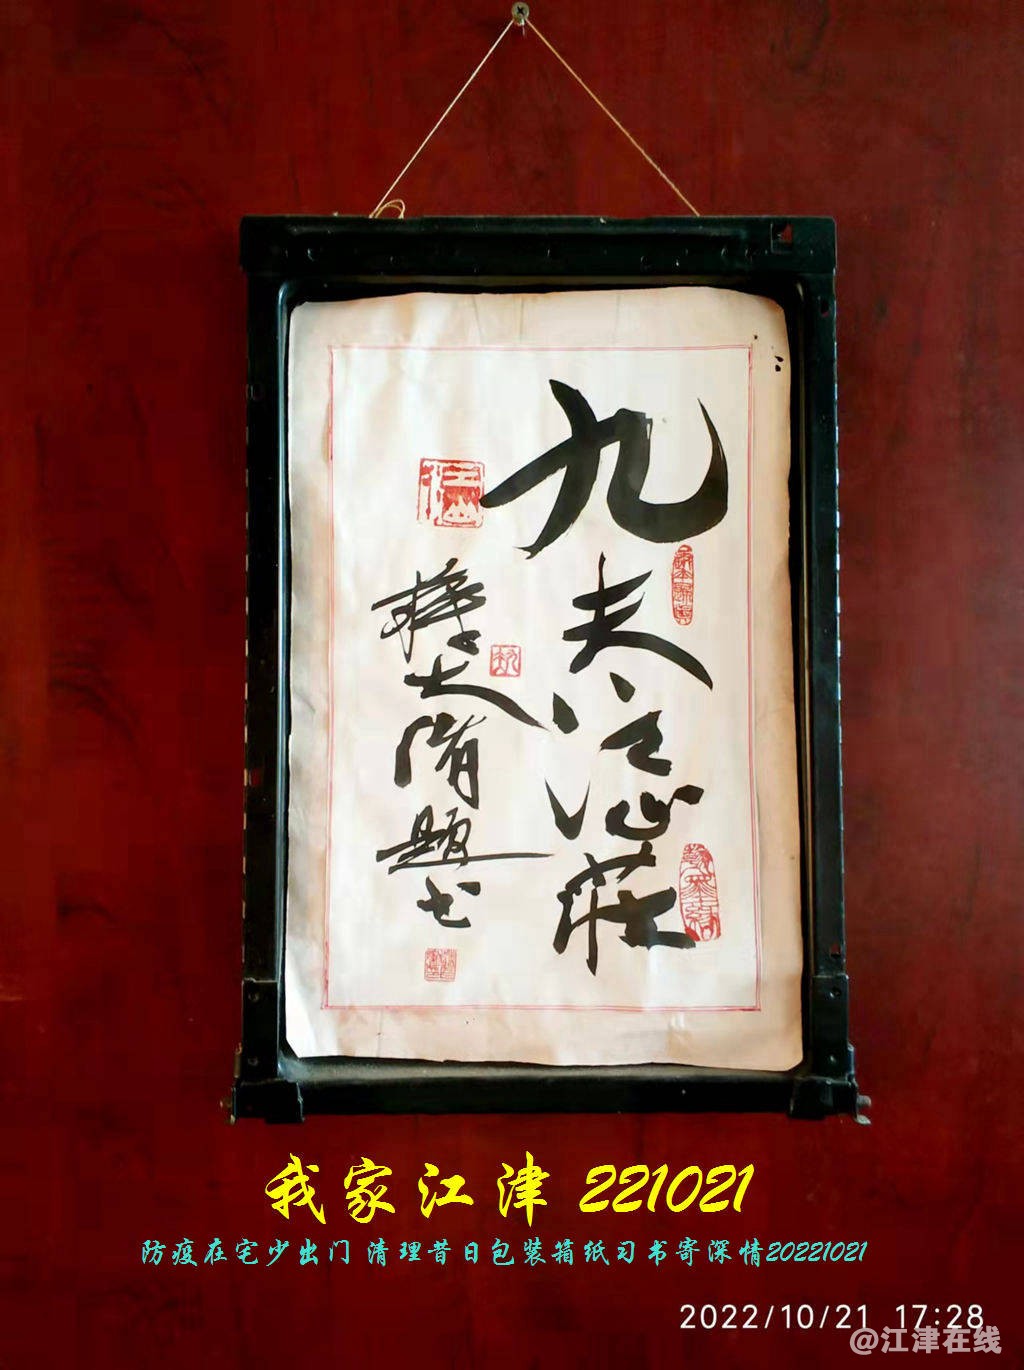 九夫江心莊
大隋題书
我家江津 221021
防疫在宅少出门 清理昔日包装箱纸习书寄深情20221021
2022/10/21 17:28
@江津在线